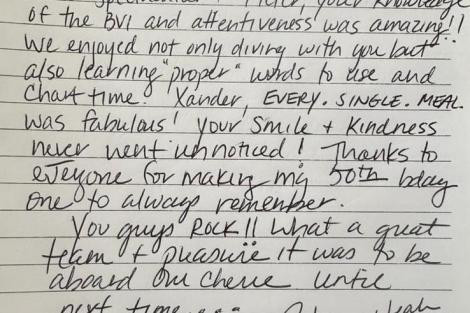 your knowledge
of the BVI and attentiveness was amazing!!
We enjoyed not only diving with you but
also learning "proper" words to use and
Chart time! Xander, EVERY. SINGLE. MEAL.
was fabulous! Your Smile + Kindness
never went unnoticed! Thanks to
everyone for making my 50th bday
one to always remember.
You guys ROCK!! What a great
team + pleasure it was to be
aboard Om Cherie until
next time....